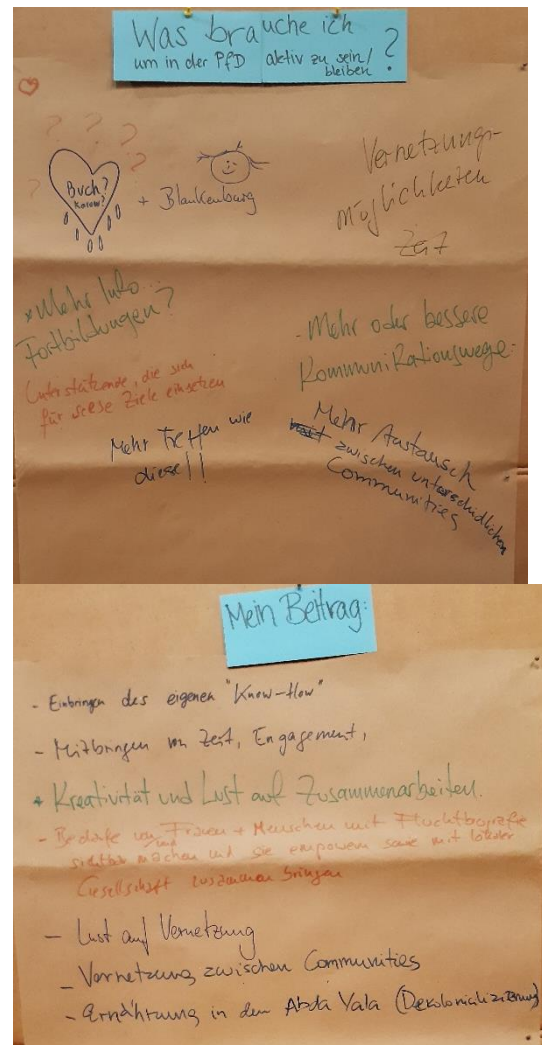 Was brauche ich
um in der PfD aktiv zu sein/
bleiben?
? ? ? ? ?
Buch?
Karow?
+ Blankenburg
Vernetzungs-
möglichkeiten
Zeit
*Mehr Info
Fortbildungen?
Unterstützende, die sich
für diese Ziele einsetzen
Mehr Treffen wie
diese!!
- Mehr oder bessere
Kommunikationswege:
Mehr Austausch
zwischen unterschidlichen
Communities
Mein Beitrag:
- Einbringen des eigenen "Know-How"
- Mitbringen von Zeit, Engagement,
* Kreativität und Lust auf Zusammenarbeiten.
- Bedarfe von Frauen + Menschen mit Fluchtbiografie
sichtbar machen und sie empowern sowie mit lokaler
Gesellschaft zusammen bringen
- Lust auf Vernetzung
- Vernetzung zwischen Communities
- Ernährung in dem Abda Yala (Dekolonializierung)